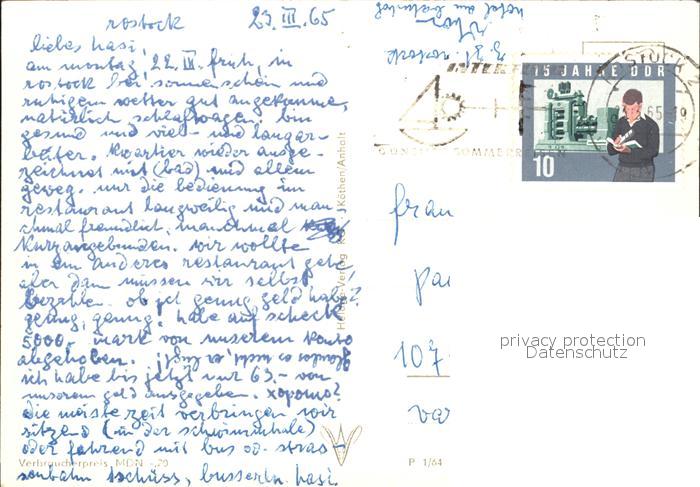 rostock 23.III.65
liebes hasi,
am montag, 22. III. früh, in
rostock bei sonnenschein und
ruhigem wetter gut angekommen,
natürlich schlafwagen. bin
gesund und viel- und langar-
beiter. quartier wieder ausge-
zeichnet mit (bad) und allem
geweg. nur die bedienung im
restaurant langweilig und man-
chmal freundlich, manchmal
kurzangebunden. wir wollte
in ein anderes restaurant gehe,
aber dan müssen wir selbst
bezahlen. ob ich genug geld habe?
genug, genug! habe auf scheck
5000.- mark von unserem konto
abgehoben.
ich habe bis jetzt nur 63.- von
unserem geld ausgegeben. хорошо?
die meiste zeit verbringen wir
sitzend (in der schwimmhalle)
oder fahrend mit bus od. stras-
senbahn tschüss, busserln hasi
Verbraucherpreis MDN -,20
P 1/64
Köthen/Anhalt
hotel am bahnhof
z. Zt. rostock
15 JAHRE DDR
10
SOMMER
frau
107
privacy protection
Datenschutz